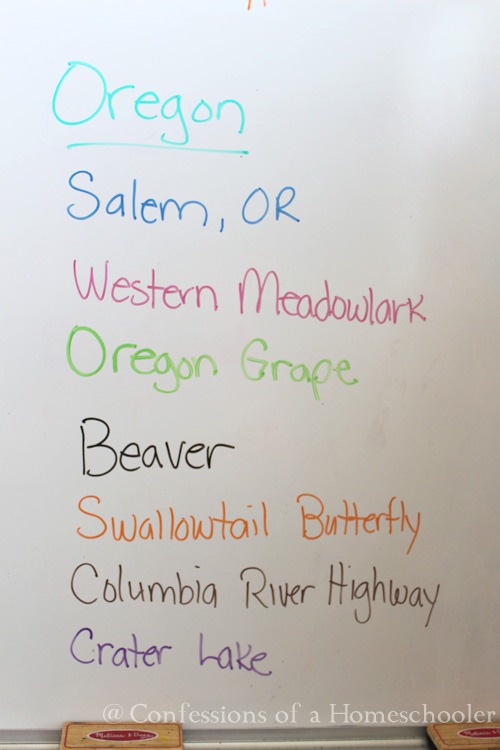 Oregon
Salem, OR
Western Meadowlark
Oregon Grape
Beaver
Swallowtail Butterfly
Columbia River Highway
Crater Lake
@ Confessions of a Homeschooler
Melissa & Doug